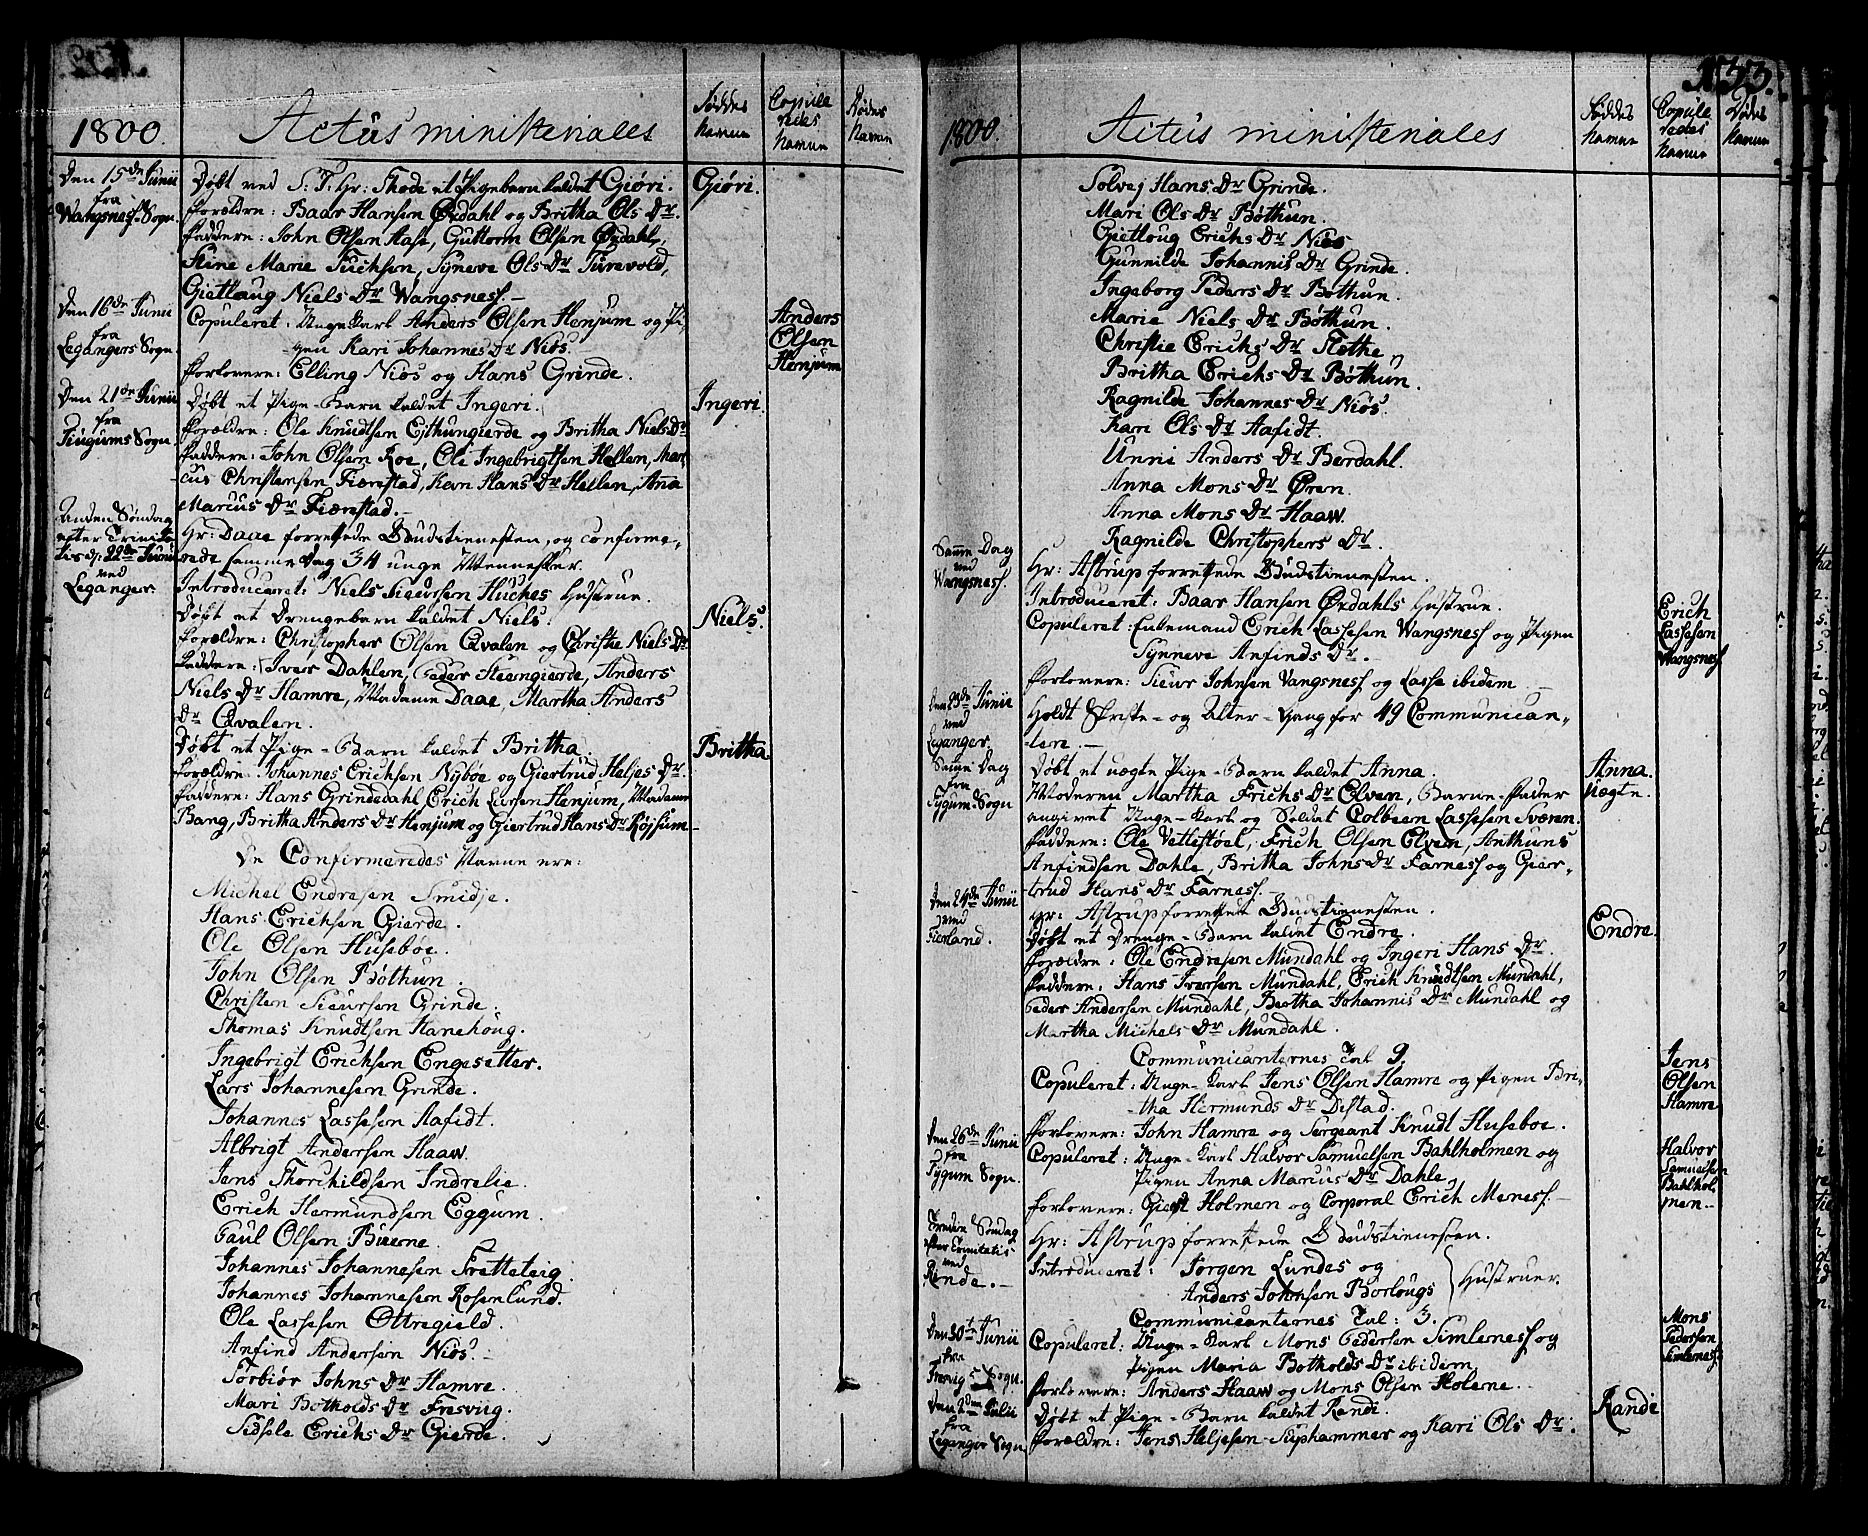 1800.
Actus ministeriales
Føddes Navne
Copule redes Navne
Dødes Navne
Den 15de Junii
fra
Wangsness Sogn.
Døbt ved S. T. Hr: Thode et Pigebarn kaldet Giøri.
Giøri.
Forældre: Baar Hansen Ørdahl og Britha Ols Dr.
Faddere: John Olsen Hase, Guttorm Olsen Ørdahl,
Stine Marie Fuchsen, Synneve Ols Dr Turevold,
Giertloug Niels Dr Wangsness.
Den 16de Junii
fra
Legangers Sogn.
Copuleret: Unge Karl Anders Olsen Henjum og Pi-
gen Kari Johannes Dr Niøs.
Forlovere: Elling Niøs og Hans Grinde.
Anders
Olsen
Henjum
Den 21de Junii
fra
Tiugums Sogn
Døbt et Pige-Barn kaldet Ingeri.
Ingeri.
Forældre: Ole Knudtsen Esthungierde og Britha Niels Dr
Faddere: John Olsen Roe, Ole Ingebrigtsen Hellen, Mar-
cus Christensen Fiærestad, Kari Hans Dr Hellen, Ana
Marcus Dr Fiærestad.
Anden Søndag
efter Trinita-
tis d: 22de Junii
ved
Leganger.
Hr: Daae forrettede Gudstienesten, og confirme-
rede samme Dag 34 unge Mennesker.
Introduceret: Niels Sieursen Huches Hustrue.
Døbt et Drengebarn kaldet Niels.
Niels.
Forældre: Christopher Olsen Qvalen og Christie Niels Dr
Faddere: Iver Dahlen, Peder Steengierde, Anders
Niels Dr Hamre, Madame Daae, Martha Anders
Dr Qvalen.
Døbt et Pige-Barn kaldet Britha.
Britha
Forældre: Johannes Erichsen Nybøe og Giertrud Heljes Dr.
Faddere: Hans Grindedahl, Erich Larsen Henjum, Madame
Bang, Britha Anders Dr Henjum og Giertrud Hans Dr Røjsum
De Confirmeredes Navne ere:
Michel Endresen Smidje.
Hans Erichsen Gierde.
Ole Olsen Husebøe.
John Olsen Bøthun.
Christen Sieursen Grinde.
Thomas Knudtsen Hanehoug.
Ingebrigt Erichsen Engesetter.
Lars Johannesen Grinde.
Johannes Lassesen Aafidt.
Albrigt Andersen Haaw.
Jens Thorchildsen Indrelie.
Erich Hermundsen Eggum.
Paul Olsen Bierne.
Johannes Johannesen Fretteteig.
Johannes Johannesen Rosenlund.
Ole Lassesen Ottregield.
Anfind Andersen Niøs.
Torbiør Johns Dr Hamre.
Mari Botholds Dr Fresviig.
Sidsele Erichs Dr Gierde.
153.
1800.
Actus ministeriales
Føddes Navne
Copule redes Navne
Dødes Navne
Solvej Hans Dr Grinde.
Mari Ols Dr Bøthun.
Gietloug Erichs Dr Niøs
Gunnilde Johannis Dr Grinde.
Ingeborg Peders Dr Bøthun.
Marie Niels Dr Bøthun.
Christie Erichs Dr Slethe
Britha Erichs Dr Bøthun.
Ragnilde Johannes Dr Niøs.
Kari Ols Dr Aafidt.
Unni Anders Dr Berdahl.
Anna Mons Dr Øren.
Anna Mons Dr Haaw.
Ragnilde Christophers Dr.
Samme Dag
ved
Wangsness.
Hr: Astrup forrettede Gudstienesten.
Introduceret: Baar Hansen Ørdahls Hustrue.
Copuleret: Enkemand Erich Lassesen Wangsness og Pigen
Synneve Anfinds Dr.
Forlovere: Sieur Johnsen Vangsness og Lasse ibidem.
Erich
Lassesen
Wangsness
Den 23de Junii
ved
Leganger.
Holdt Skrifte- og Alter-Gang for 49 Communican-
tere.
Samme Dag
fra
Tygum Sogn
Døbt et uægte Pige-Barn kaldet Anna.
Anna.
Uægte.
Moderen Martha Erichs Dr Elven, Barne-Fader
angivet Unge-Karl og Soldat Colbeen Lassesen Sværen.
Faddere: Ole Vettestøel, Erich Olsen Elven, Anthuns
Anfindsen Dahle, Britha Johns Dr Farness og Gier-
trud Hans Dr Farness.
Den 24de Junii
ved
Fierland.
Hr: Astrup forrettede Gudstienesten.
Døbt et Drenge-Barn kaldet Endre.
Endre.
Forældre: Ole Endresen Mundahl og Ingeri Hans Dr.
Faddere: Hans Iversen Mundahl, Erich Knudtsen Mundahl,
Peder Andersen Mundahl, Beretha Johannis Dr Mundahl og
Martha Michels Dr Mundahl.
Communicanternes Tal 9.
Copuleret: Unge-Karl Jens Olsen Hamre og Pigen Bri-
tha Hermunds Dr Distad.
Forlovere: John Hamre og Sergeant Knudt Husebøe.
Jens
Olsen
Hamre
Den 26de Junii
fra
Tygum Sogn.
Copuleret: Unge-Karl Halvor Samuelsen Bahlholmen og
Pigen Anna Marcus Dr Dahle,
Forlovere: Giert Holmen og Corporal Erich Meness.
Halvor
Samuelsen
Bahlhol-
men
Tredie Søndag
efter Trinitatis
ved
Rinde.
Hr: Astrup forrettede Gudstienesten.
Introduceret: Jørgen Lundes og
Anders Johnsen Borlougs
Hustruer.
Communicanternes Tal: 3.
Den 30te Junii
fra
Fresvig Sogn.
Copuleret: Unge-Karl Mons Pedersen Simleness og
Pigen Maria Botholds Dr ibidem
Forlovere: Anders Haaw og Mons Olsen Holene.
Mons
Pedersen
Simleness
Den 2den Julii
fra
Leganger Sogn
Døbt et Pige-Barn kaldet Randi.
Randi
Forældre: Jens Heljesen Suphammer og Kari Ols Dr.